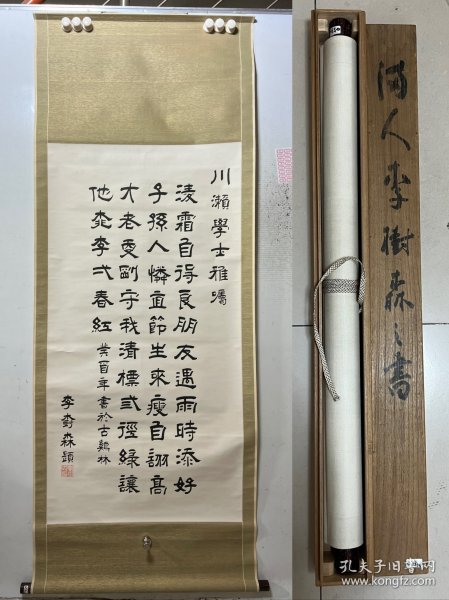 川瀨學士雅囑
淩霜自得良朋友遇雨時添好
子孫人憐直節生來瘦自詡高
才老更剛守我清標弍徑綠讓
他桃李弌春紅
癸酉年書於古鷄林
李樹森題
滿人李樹森之書
孔夫子旧书网
www.kongfz.com